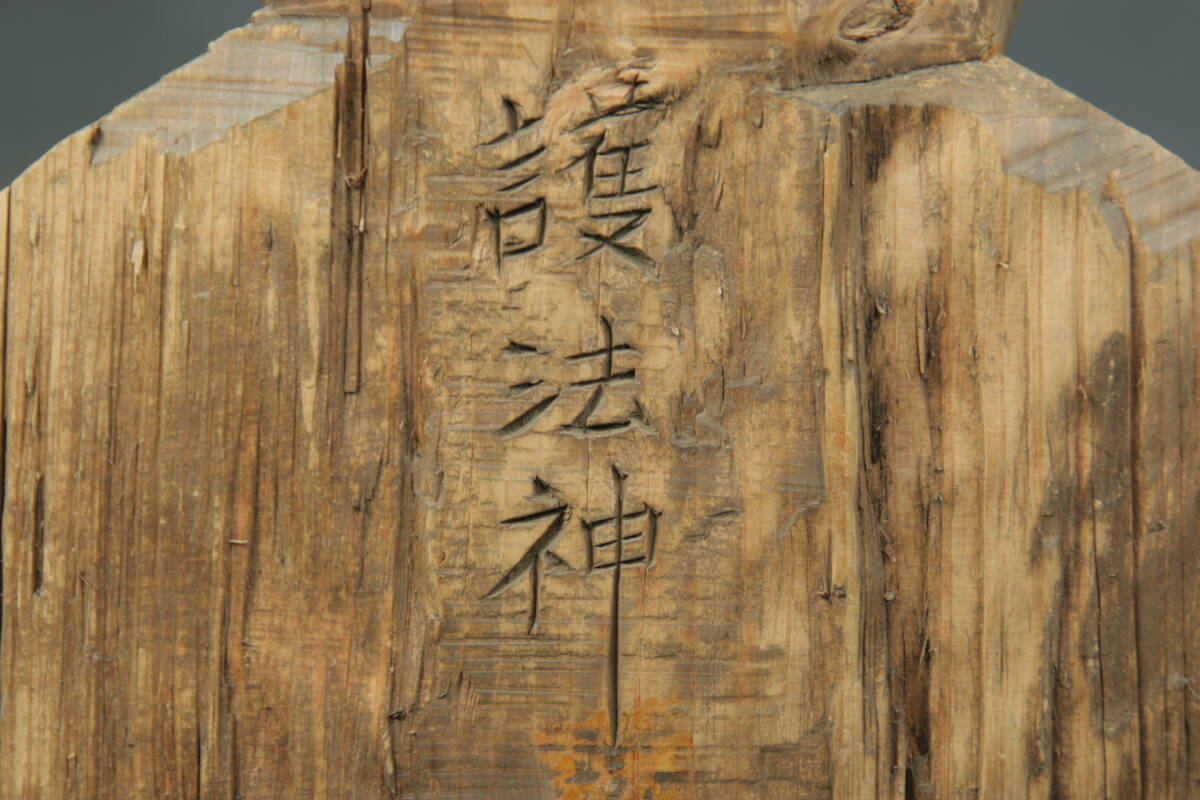 護法神